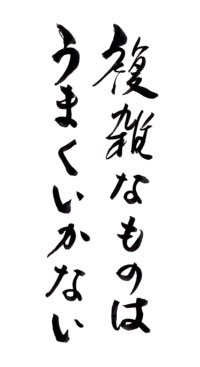 複雑なものは
うまくいかない